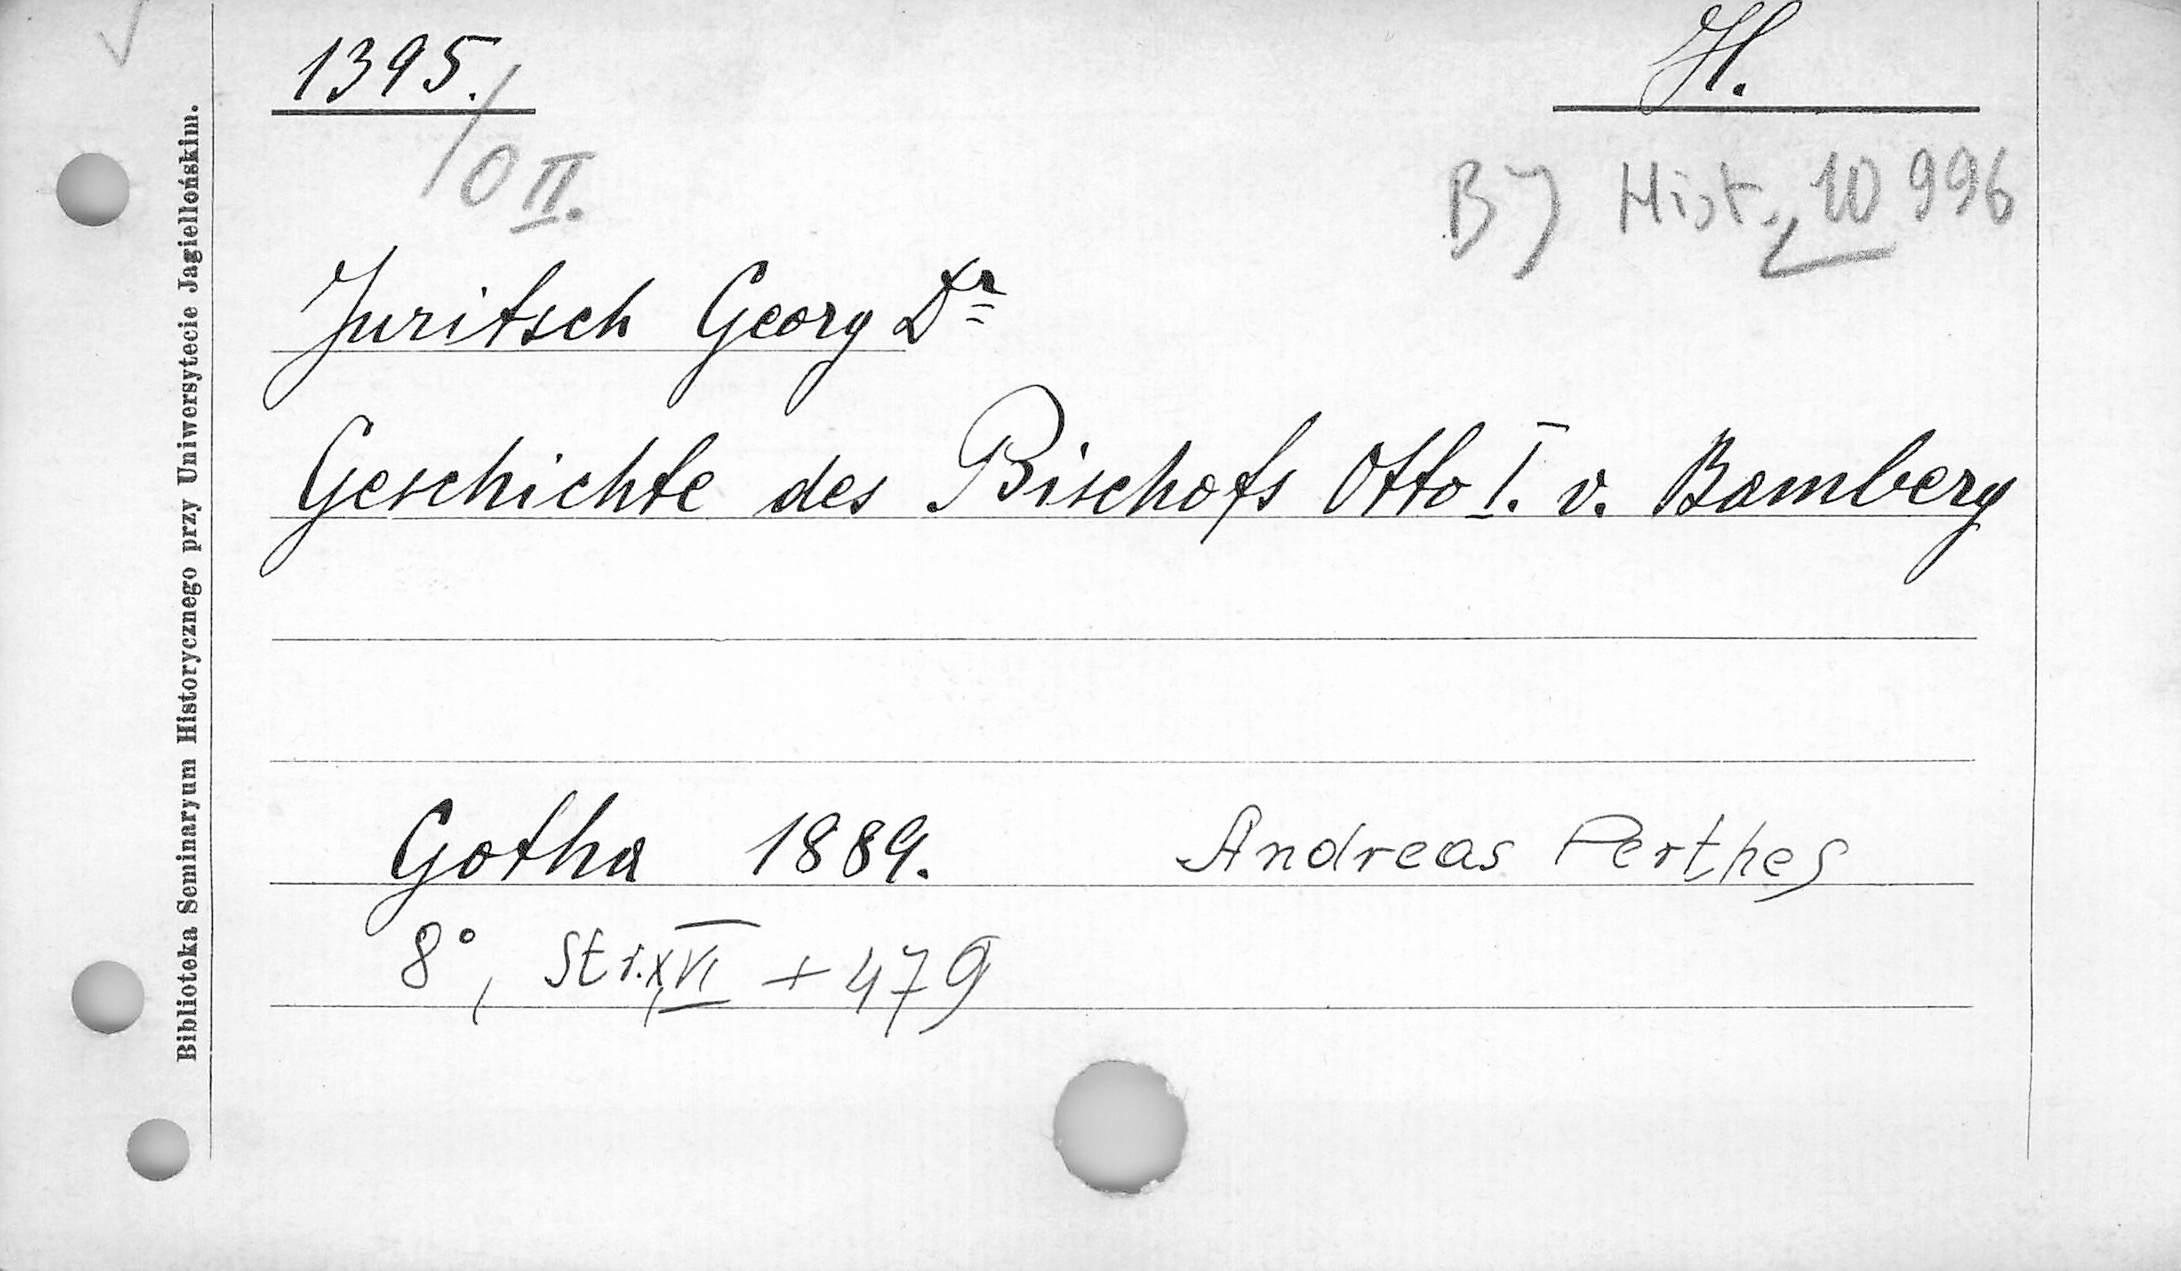 1395. H.
/O II. BJ Hist. 10 996
Juritsch Georg Dr
Geschichte des Bischofs Otto I. v. Bamberg
Gotha 1889. Andreas Perthes
8°, Str. XVI + 479
Biblioteka Seminaryum Historycznego przy Uniwersytecie Jagiellońskim.